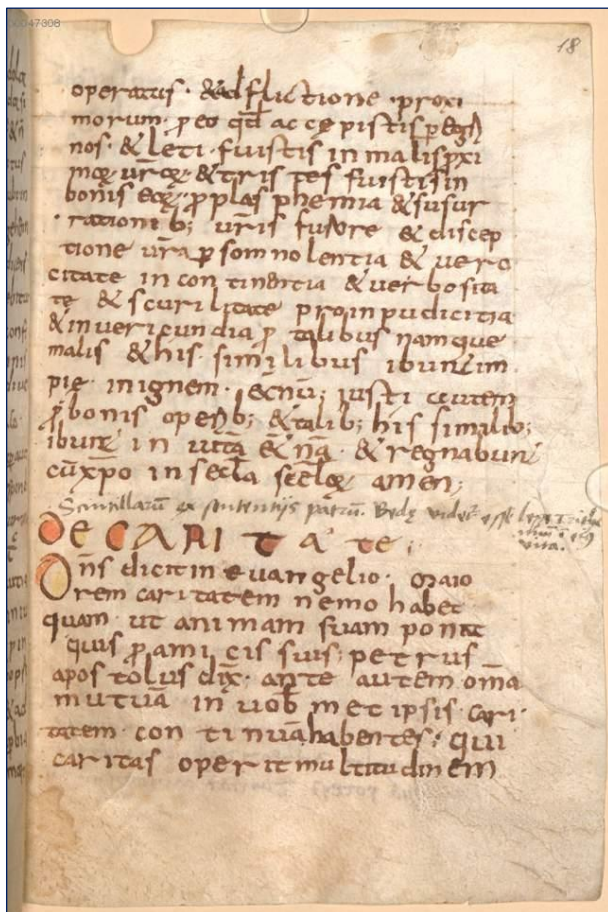 18
operatus · & adflictione · proxi
morum · p eo qđ accępistis pegři
nos · & leti · fuistis in malis pxi
moꝝ urōꝝ · & tristes fuistis in
bonis eoꝝ · p plasphemia & susur
rationib; uris furore & discep
tione ura p somnolentia & uero
citate incontinentia & uerbosita
tę & scurilitate pro inpudicitia
& inuericundia p talibus namque
malis & his similibus ibunt im
pię in ignem · ęťnū; iusti autem
p bonis opeřb; & talib; his similib;
ibunt in uitā ęťnā · & regnabunt
cū xpo in secła secłoꝝ amen;
Scintillarum ex sententijs patrum. Bedę videt esse
DE CARITATE;
Dn̄s dicit in euangelio · Maio
rem caritatem nemo habet
quam ut animam suam ponat
quis p amicis suis; petrus
apostolus dix̄ · ante autem om̄a
mutuā in uob̄ met ipsis cari
tatem continuā habentes; qui
caritas operit multitudinem